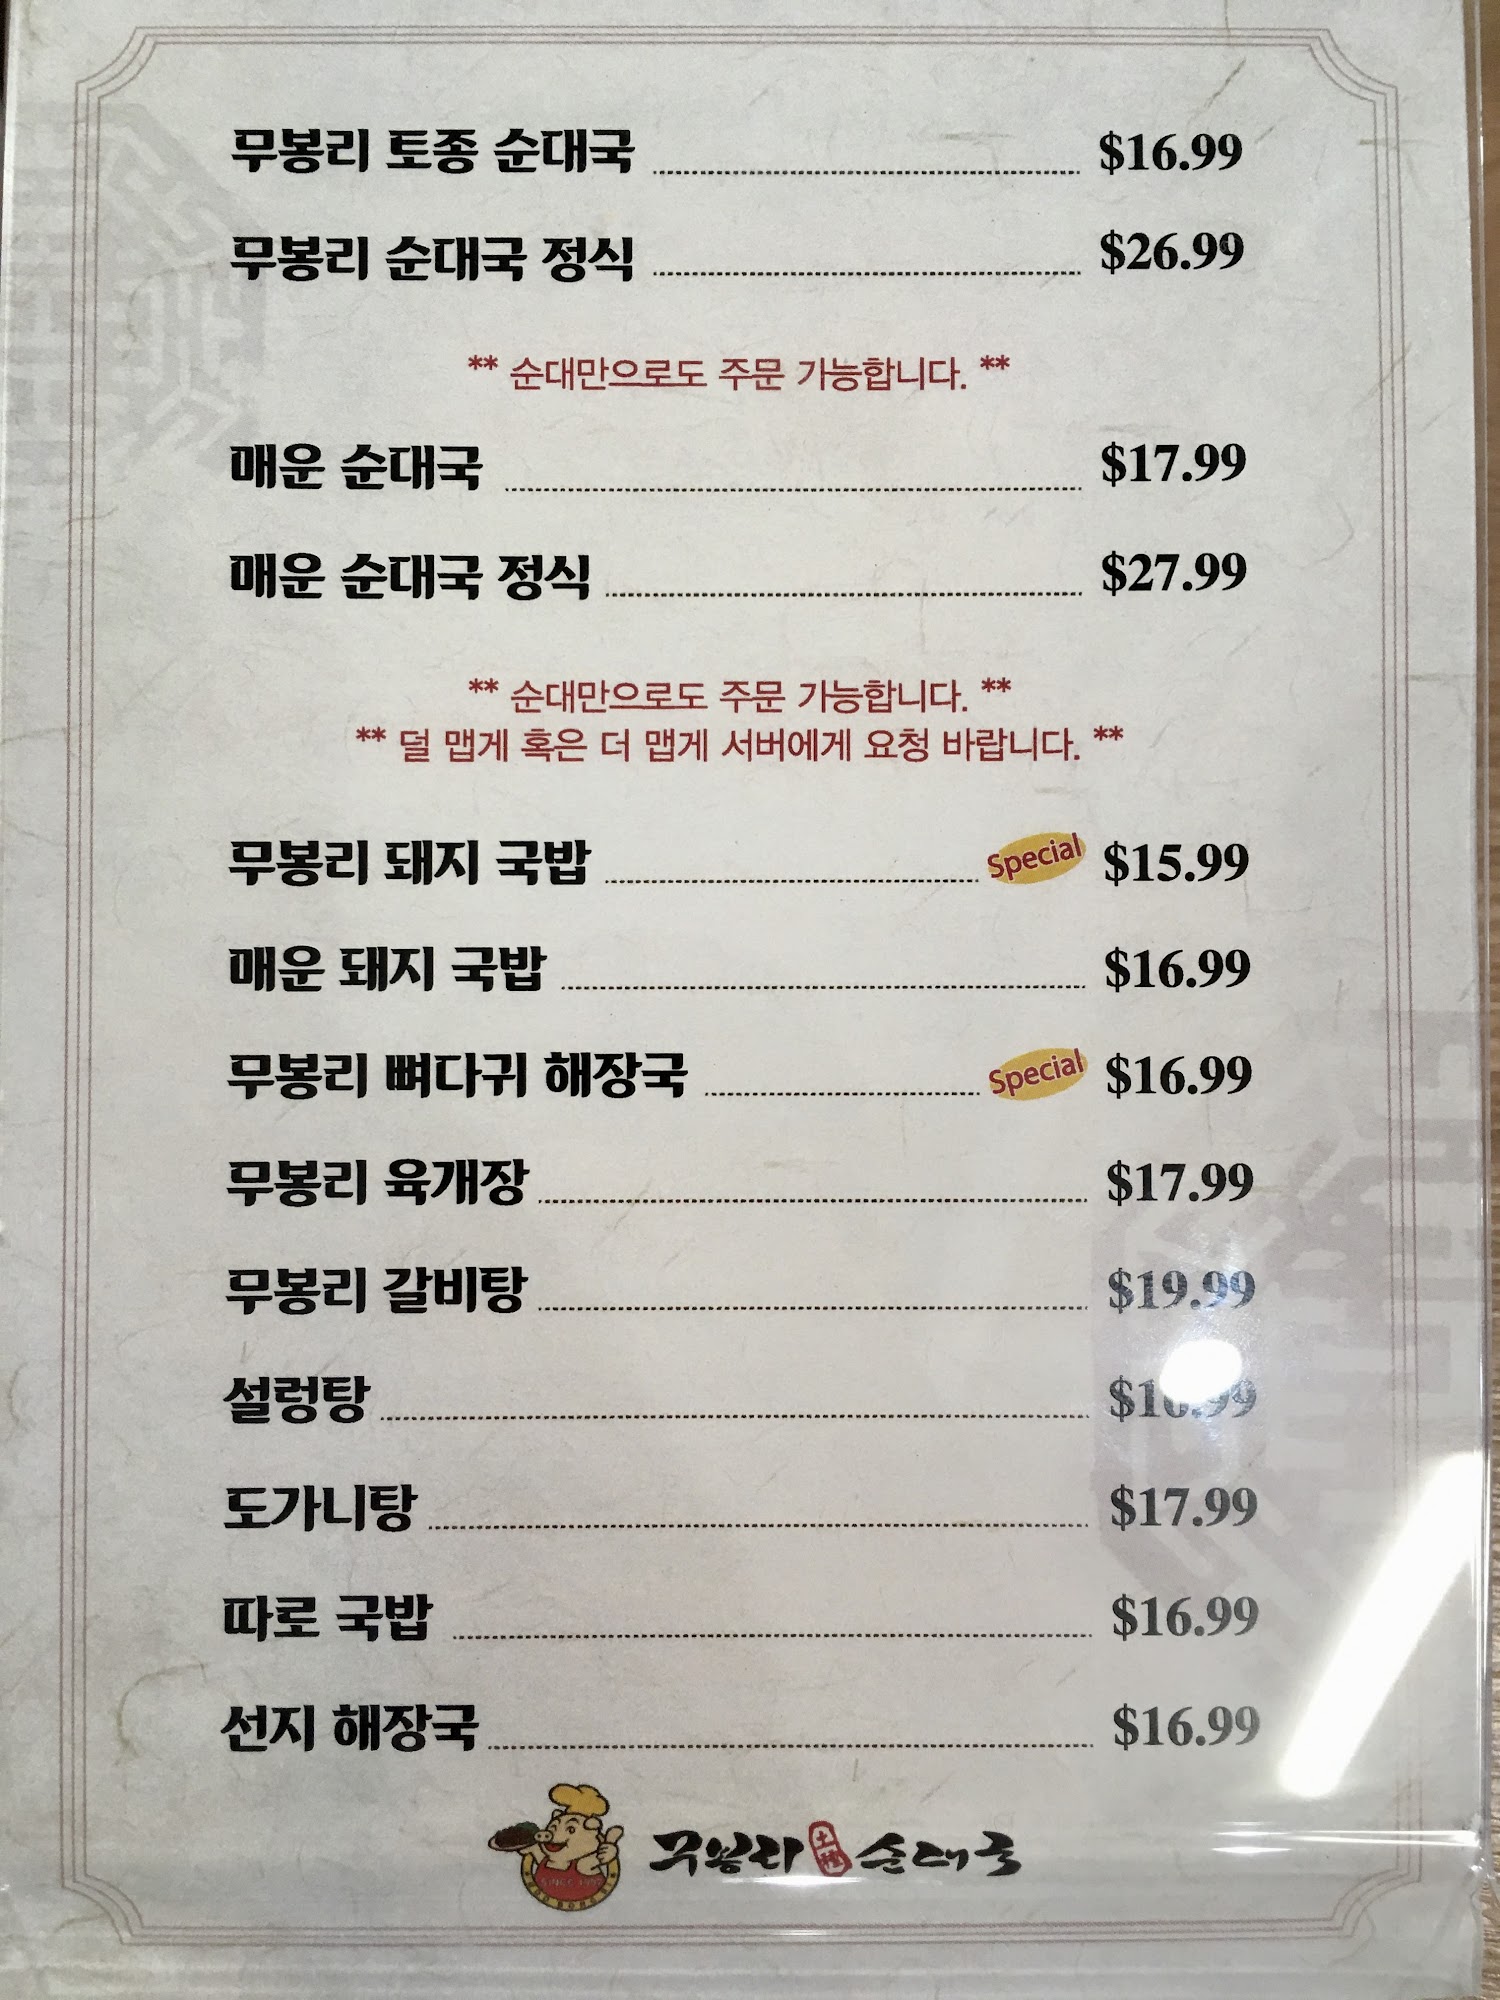 무봉리 토종 순대국 $16.99
무봉리 순대국 정식 $26.99
** 순대만으로도 주문 가능합니다. **
매운 순대국 $17.99
매운 순대국 정식 $27.99
** 순대만으로도 주문 가능합니다. **
** 덜 맵게 혹은 더 맵게 서버에게 요청 바랍니다. **
무봉리 돼지 국밥 Special $15.99
매운 돼지 국밥 $16.99
무봉리 뼈다귀 해장국 Special $16.99
무봉리 육개장 $17.99
무봉리 갈비탕 $19.99
설렁탕
도가니탕 $17.99
따로 국밥 $16.99
선지 해장국 $16.99
무봉리 순대국
SINCE 1997